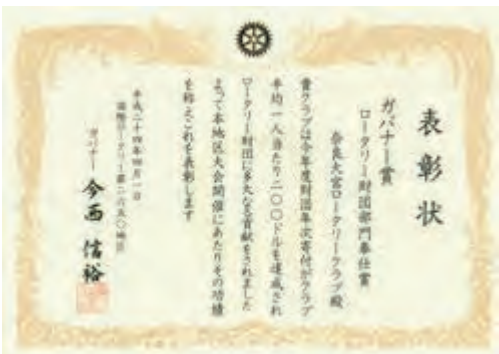 表彰状
ガバナー賞
ロータリー財団部門奉仕賞
奈良大宮ロータリークラブ殿
貴クラブは今年度財団年次寄付がクラブ
平均一人当たり二〇〇ドルを達成され
ロータリー財団に多大な貢献をされました
よって本地区大会開催にあたりその功績
を称えこれを表彰します
平成二十四年四月一日
国際ロータリー第二六五〇地区
ガバナー 今西信裕